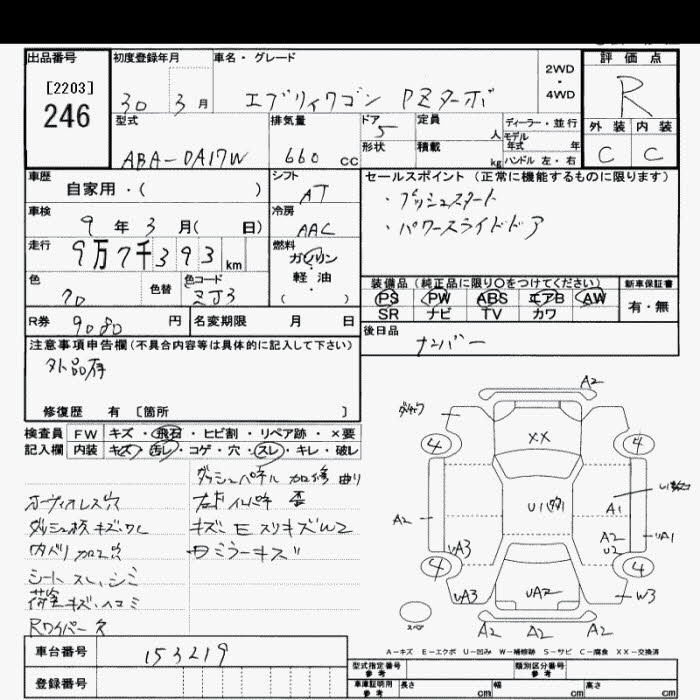 出品番号
[2203]
246
初度登録年月
30 3 月
車名・グレード
エブリイワゴン PZターボ
2WD
・
4WD
評価点
R
外装 内装
C C
型式
ABA-DA17W
排気量
660 cc
ドア
5
形状
定員
人
積載
kg
ディーラー・並行
モデル年式 年
ハンドル 左・右
車歴
自家用・( )
シフト
AT
セールスポイント(正常に機能するものに限ります)
・プッシュスタート
・パワースライドドア
車検
9 年 3 月( 日)
冷房
AAC
走行
9万7千393 km
燃料
ガソリン
・
軽・油
( )
色
色替
色コード
ZJ3
装備品(純正品に限り○をつけてください)
PS PW ABS エアB AW
SR ナビ TV カワ
新車保証書
有・無
R券 9080 円
名変期限 月 日
後日品
ナンバー
注意事項申告欄(不具合内容等は具体的に記入して下さい)
外品有
修復歴 有 〔箇所 〕
検査員記入欄
FW キズ・飛石・ヒビ割・リペア跡・×要
内装 キズ・汚レ・コゲ・穴・スレ・キレ・破レ
ダッシュパネル 加修 曲り
オーディオレス穴
キズ・E スリキズW2
内バリ 加工穴
ミラーキズ
シート スレ、シミ
キズ・ヘコミ
Rワイパー欠
車台番号 153219
登録番号
A2
XX
4 4
U1
A1
A2
A2
U2
UA1
UA3
4 4
UA3
UA2
W3
スペア
A2 A2 A2
A-キズ E-エクボ U-凹み W-補修跡 S-サビ C-腐食 XX-交換済
型式指定番号
参考
類別区分番号
参考
車庫証明用
参考
長さ cm 幅 cm 高さ cm